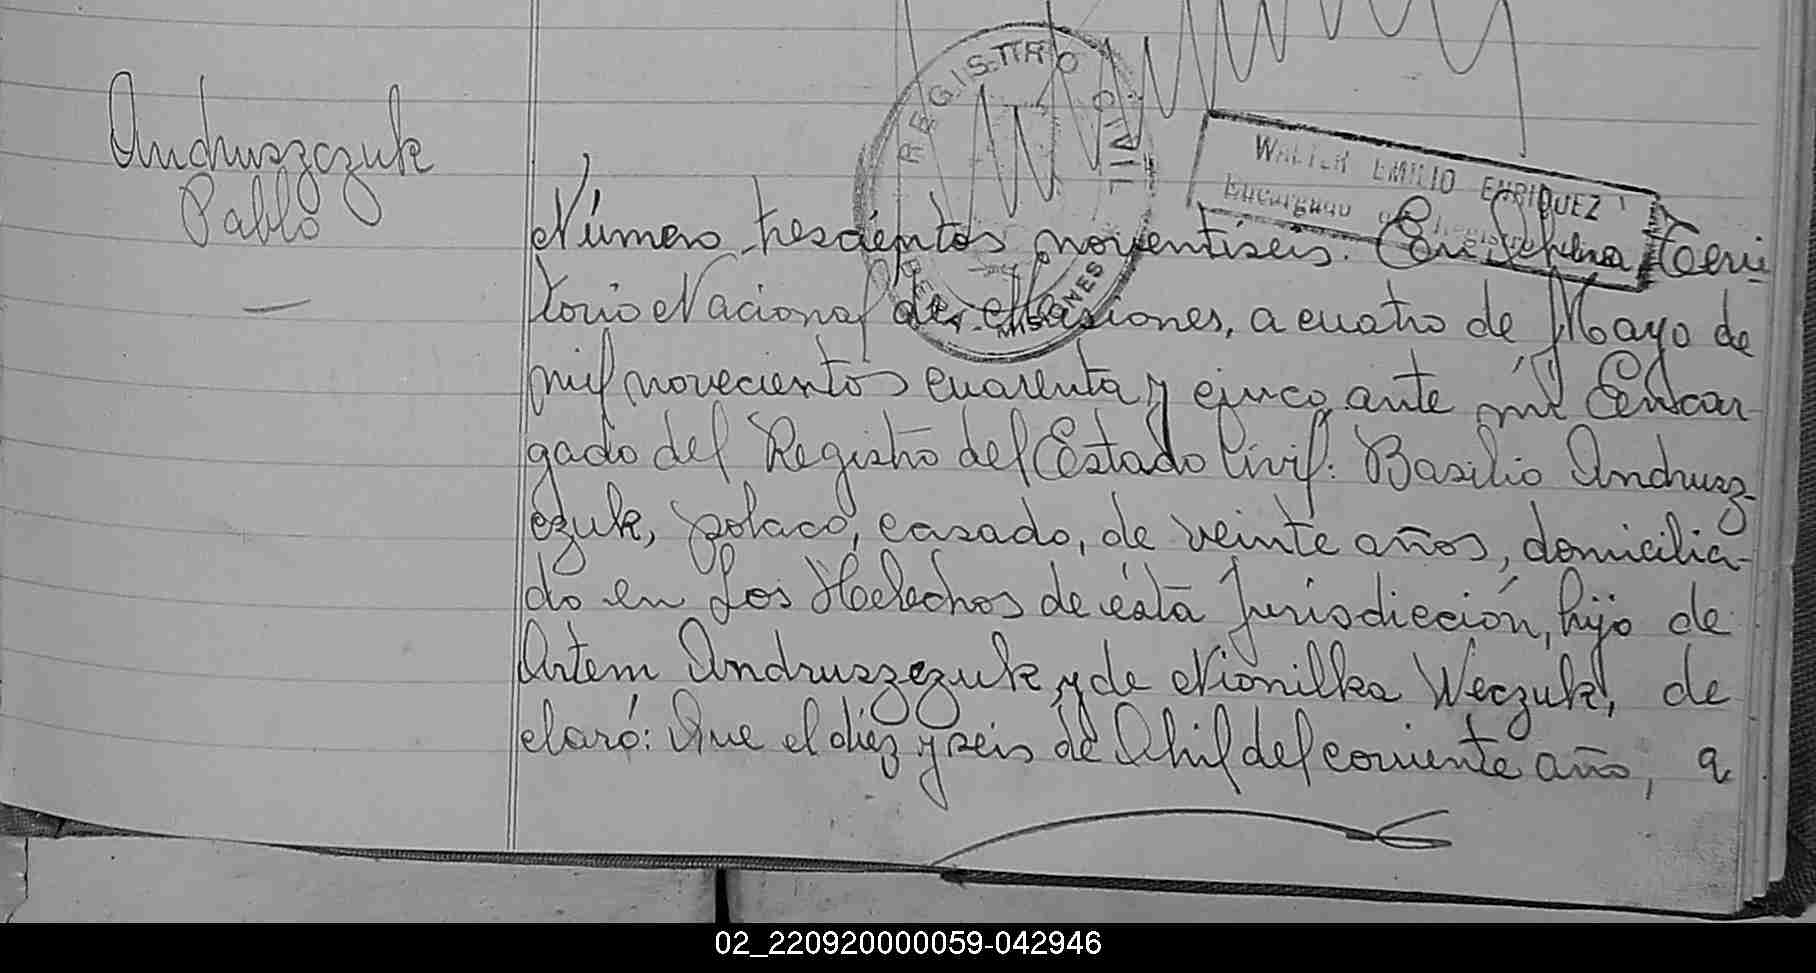 REGISTRO CIVIL
WALTER EMILIO ENRIQUEZ
Encargado
MISIONES
Andruszczuk
Pablo
Número trescientos noventiseis. En Terri
torio Nacional de Misiones, a cuatro de Mayo de
mil novecientos cuarenta y cinco, ante mi Encar-
gado del Registro del Estado Civil: Basilio Andrusz-
czuk, polaco, casado, de veinte años, domicilia-
do en Los Helechos de ésta Jurisdicción, hijo de
Artem Andruszczuk y de Nionilka Weczuk, de
claró: Que el diez y seis de Abril del corriente año, a
02_220920000059-042946